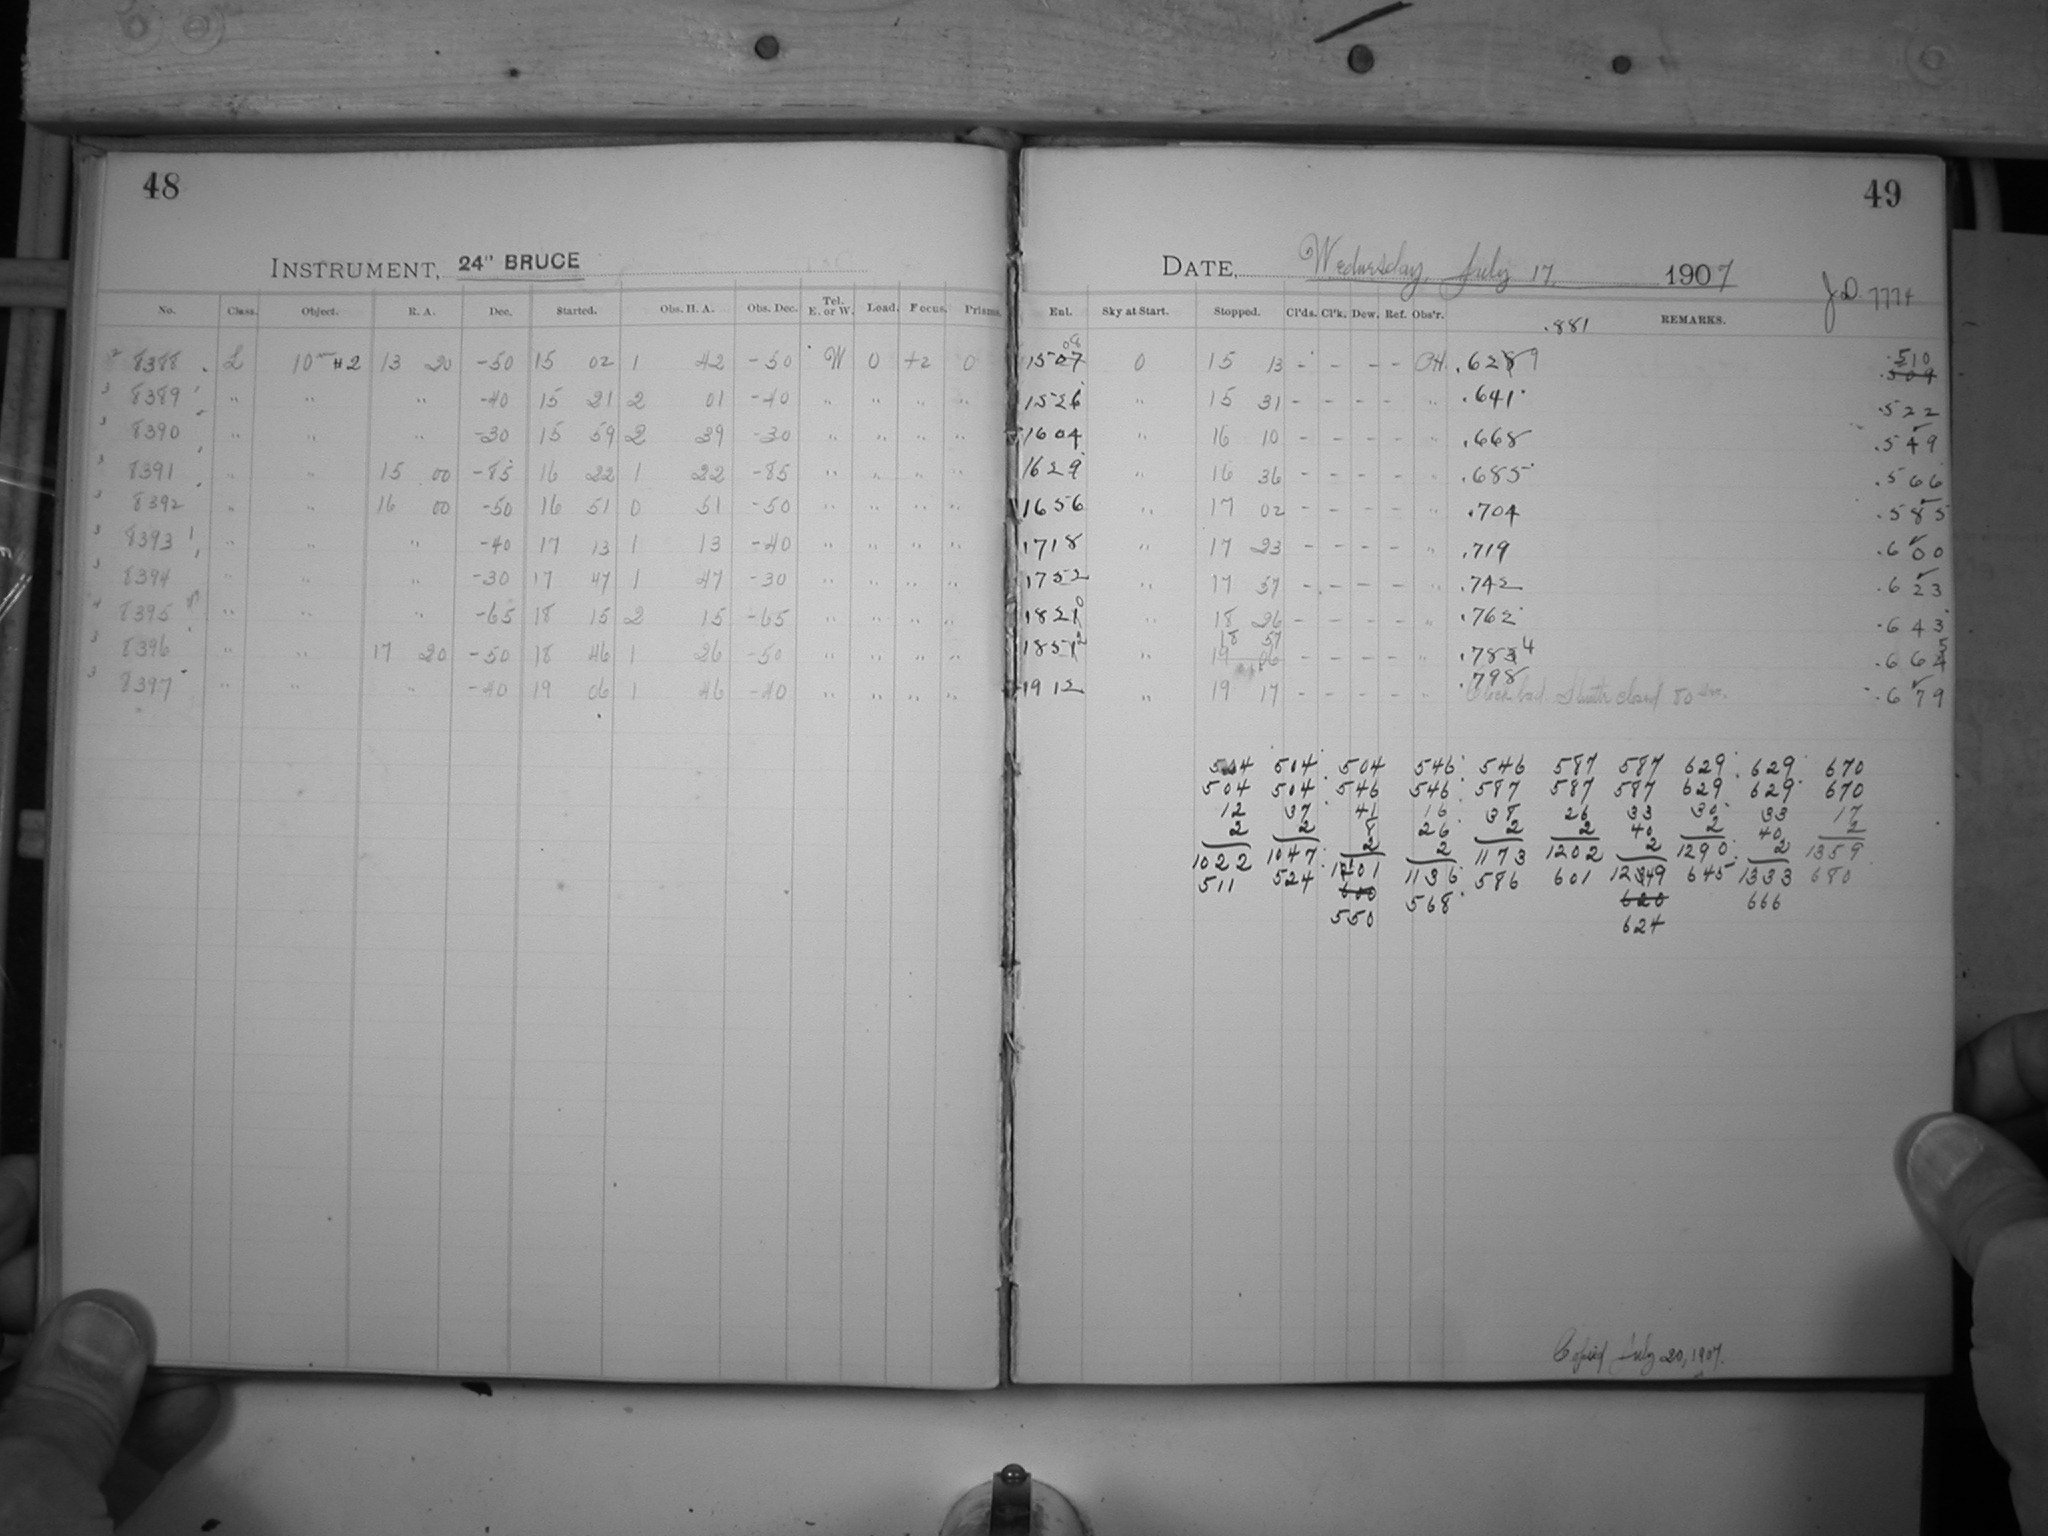 48
INSTRUMENT, 24" BRUCE
No. Class. Object. R. A. Dec. Started. Obs. H. A. Obs. Dec. Tel. E. or W. Load. Focus. Prisms.
2 8388 L 10m #2 13 20 -50 15 02 1 42 -50 W 0 +2 0
3 8389 " " " -40 15 21 2 01 -40 " " " "
3 8390 " " " -30 15 59 2 39 -30 " " " "
3 8391 " " 15 00 -85 16 22 1 22 -85 " " " "
3 8392 " " 16 00 -50 16 51 0 51 -50 " " " "
3 8393 " " " -40 17 13 1 13 -40 " " " "
3 8394 " " " -30 17 47 1 47 -30 " " " "
8395 " " " -65 18 15 2 15 -65 " " " "
3 8396 " " 17 20 -50 18 46 1 26 -50 " " " "
3 8397 " " " -40 19 06 1 46 -40 " " " "
49
DATE, Wednesday, July 17, 1907
J D 7774
Ent. Sky at Start. Stopped. Cl'ds. Cl'k. Dew. Ref. Obs'r. REMARKS.
.881
08
1507 0 15 13 - - - - OH. .6289 .510
.509
1526 " 15 31 - - - - " .641 .522
1604 " 16 10 - - - - " .668 .549
1629 " 16 36 - - - - " .685 .566
1656 " 17 02 - - - - " .704 .585
1718 " 17 23 - - - - " .719 .600
1752 " 17 57 - - - - " .742 .623
1821 0 " 18 26 - - - - " .762 .643
18 57
1851 2 " 19 06 - - - - " .783 4 .664 5
.798
1912 " 19 17 - - - - " Clock bad. Shutter closed 80 sec. .679
504 504 504 546 546 587 587 629 629 670
504 504 546 546 587 587 587 629 629 670
12 37 41 16 38 26 33 30 33 17
2 2 8 26 2 2 40 2 40 2
2 2 2 2
1022 1047 1101 1136 1173 1202 1249 1290 1333 1359
511 524 600 568 586 601 620 645 666 680
550 624
Copied July 20, 1907.